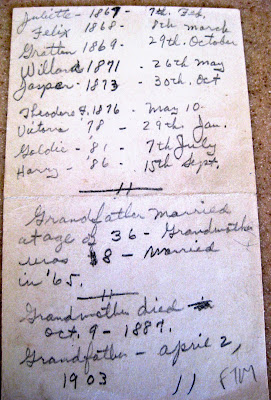 Juliette - 1867 - 7th. Feb.
Felix 1868 - 8th March
Grattan 1869 - 29th. October
Willard 1871 - 26th May
Jasper - 1873 - 30th. Oct
Theodore F. 1876 - May 10-
Victoria 78 - 29th. Jan.
Goldie - '81 - 7th July
Harry - '86 - 15th Sept.
11
Grandfather Married
at age of 36 - Grandmother
was 18 - Married
in '65.
11
Grandmother died
Oct. 9 - 1887.
Grandfather - April 2,
1903 11